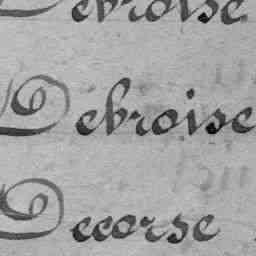 Devroise
Debroise
Decorse